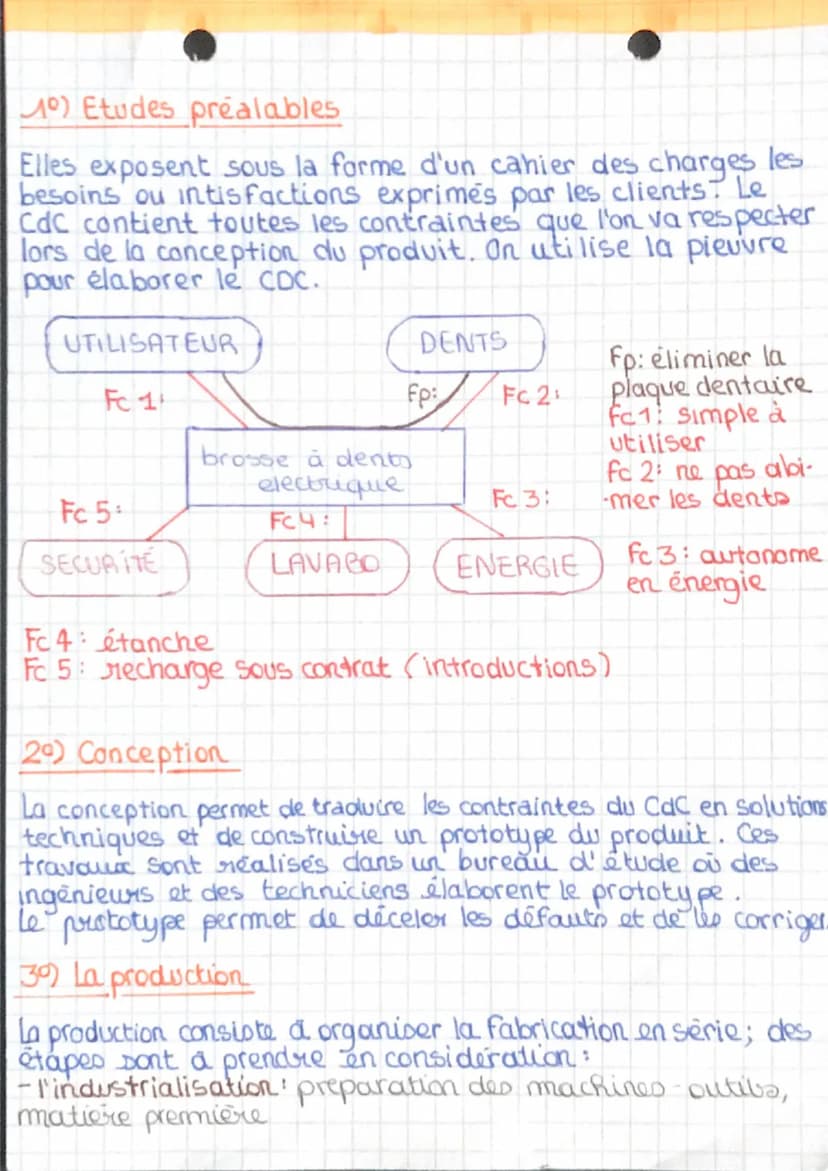 1°) Etudes préalables
Elles exposent sous la forme d'un cahier des charges les
besoins ou intisfactions exprimés par les clients. Le
CdC contient toutes les contraintes que l'on va respecter
lors de la conception du produit. On utilise la pieuvre
pour élaborer le CDC.
UTILISATEUR
DENTS
Fc 1:
Fp:
Fc 2:
brosse à dents
electrique
Fc 5:
Fc 4:
Fc 3:
SECURITÉ
LAVABO
ENERGIE
Fp: éliminer la
plaque dentaire
Fc 1: simple à
utiliser
Fc 2: ne pas abi-
-mer les dents
Fc 3: autonome
en énergie
Fc 4: étanche
Fc 5: recharge sous contrat (introductions)
2°) Conception
La conception permet de traduire les contraintes du CdC en solutions
techniques et de construire un prototype du produit. Ces
travaux sont réalisés dans un bureau d'étude où des
ingénieurs et des techniciens élaborent le prototype.
Le prototype permet de déceler les défauts et de les corriger.
3°) La production
La production consiste à organiser la fabrication en série; des
étapes sont à prendre en considération:
- l'industrialisation: préparation des machines-outils,
matière première